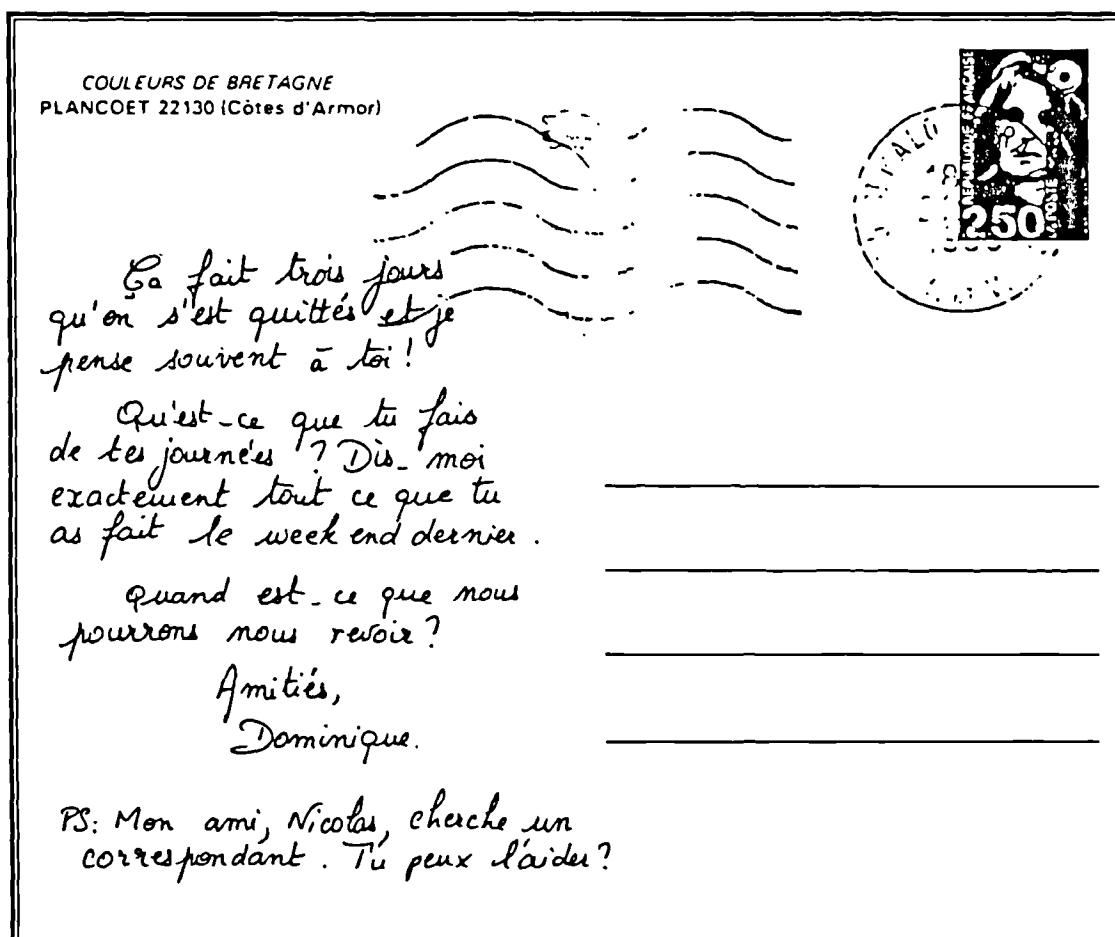 COULEURS DE BRETAGNE
PLANCOET 22130 (Côtes d'Armor)
REPUBLIQUE FRANÇAISE
LA POSTE
2,50
Ça fait trois jours
qu'on s'est quittés et je
pense souvent à toi !
Qu'est-ce que tu fais
de tes journées ? Dis-moi
exactement tout ce que tu
as fait le week end dernier.
Quand est-ce que nous
pourrons nous revoir ?
Amitiés,
Dominique.
PS: Mon ami, Nicolas, cherche un
correspondant. Tu peux l'aider ?